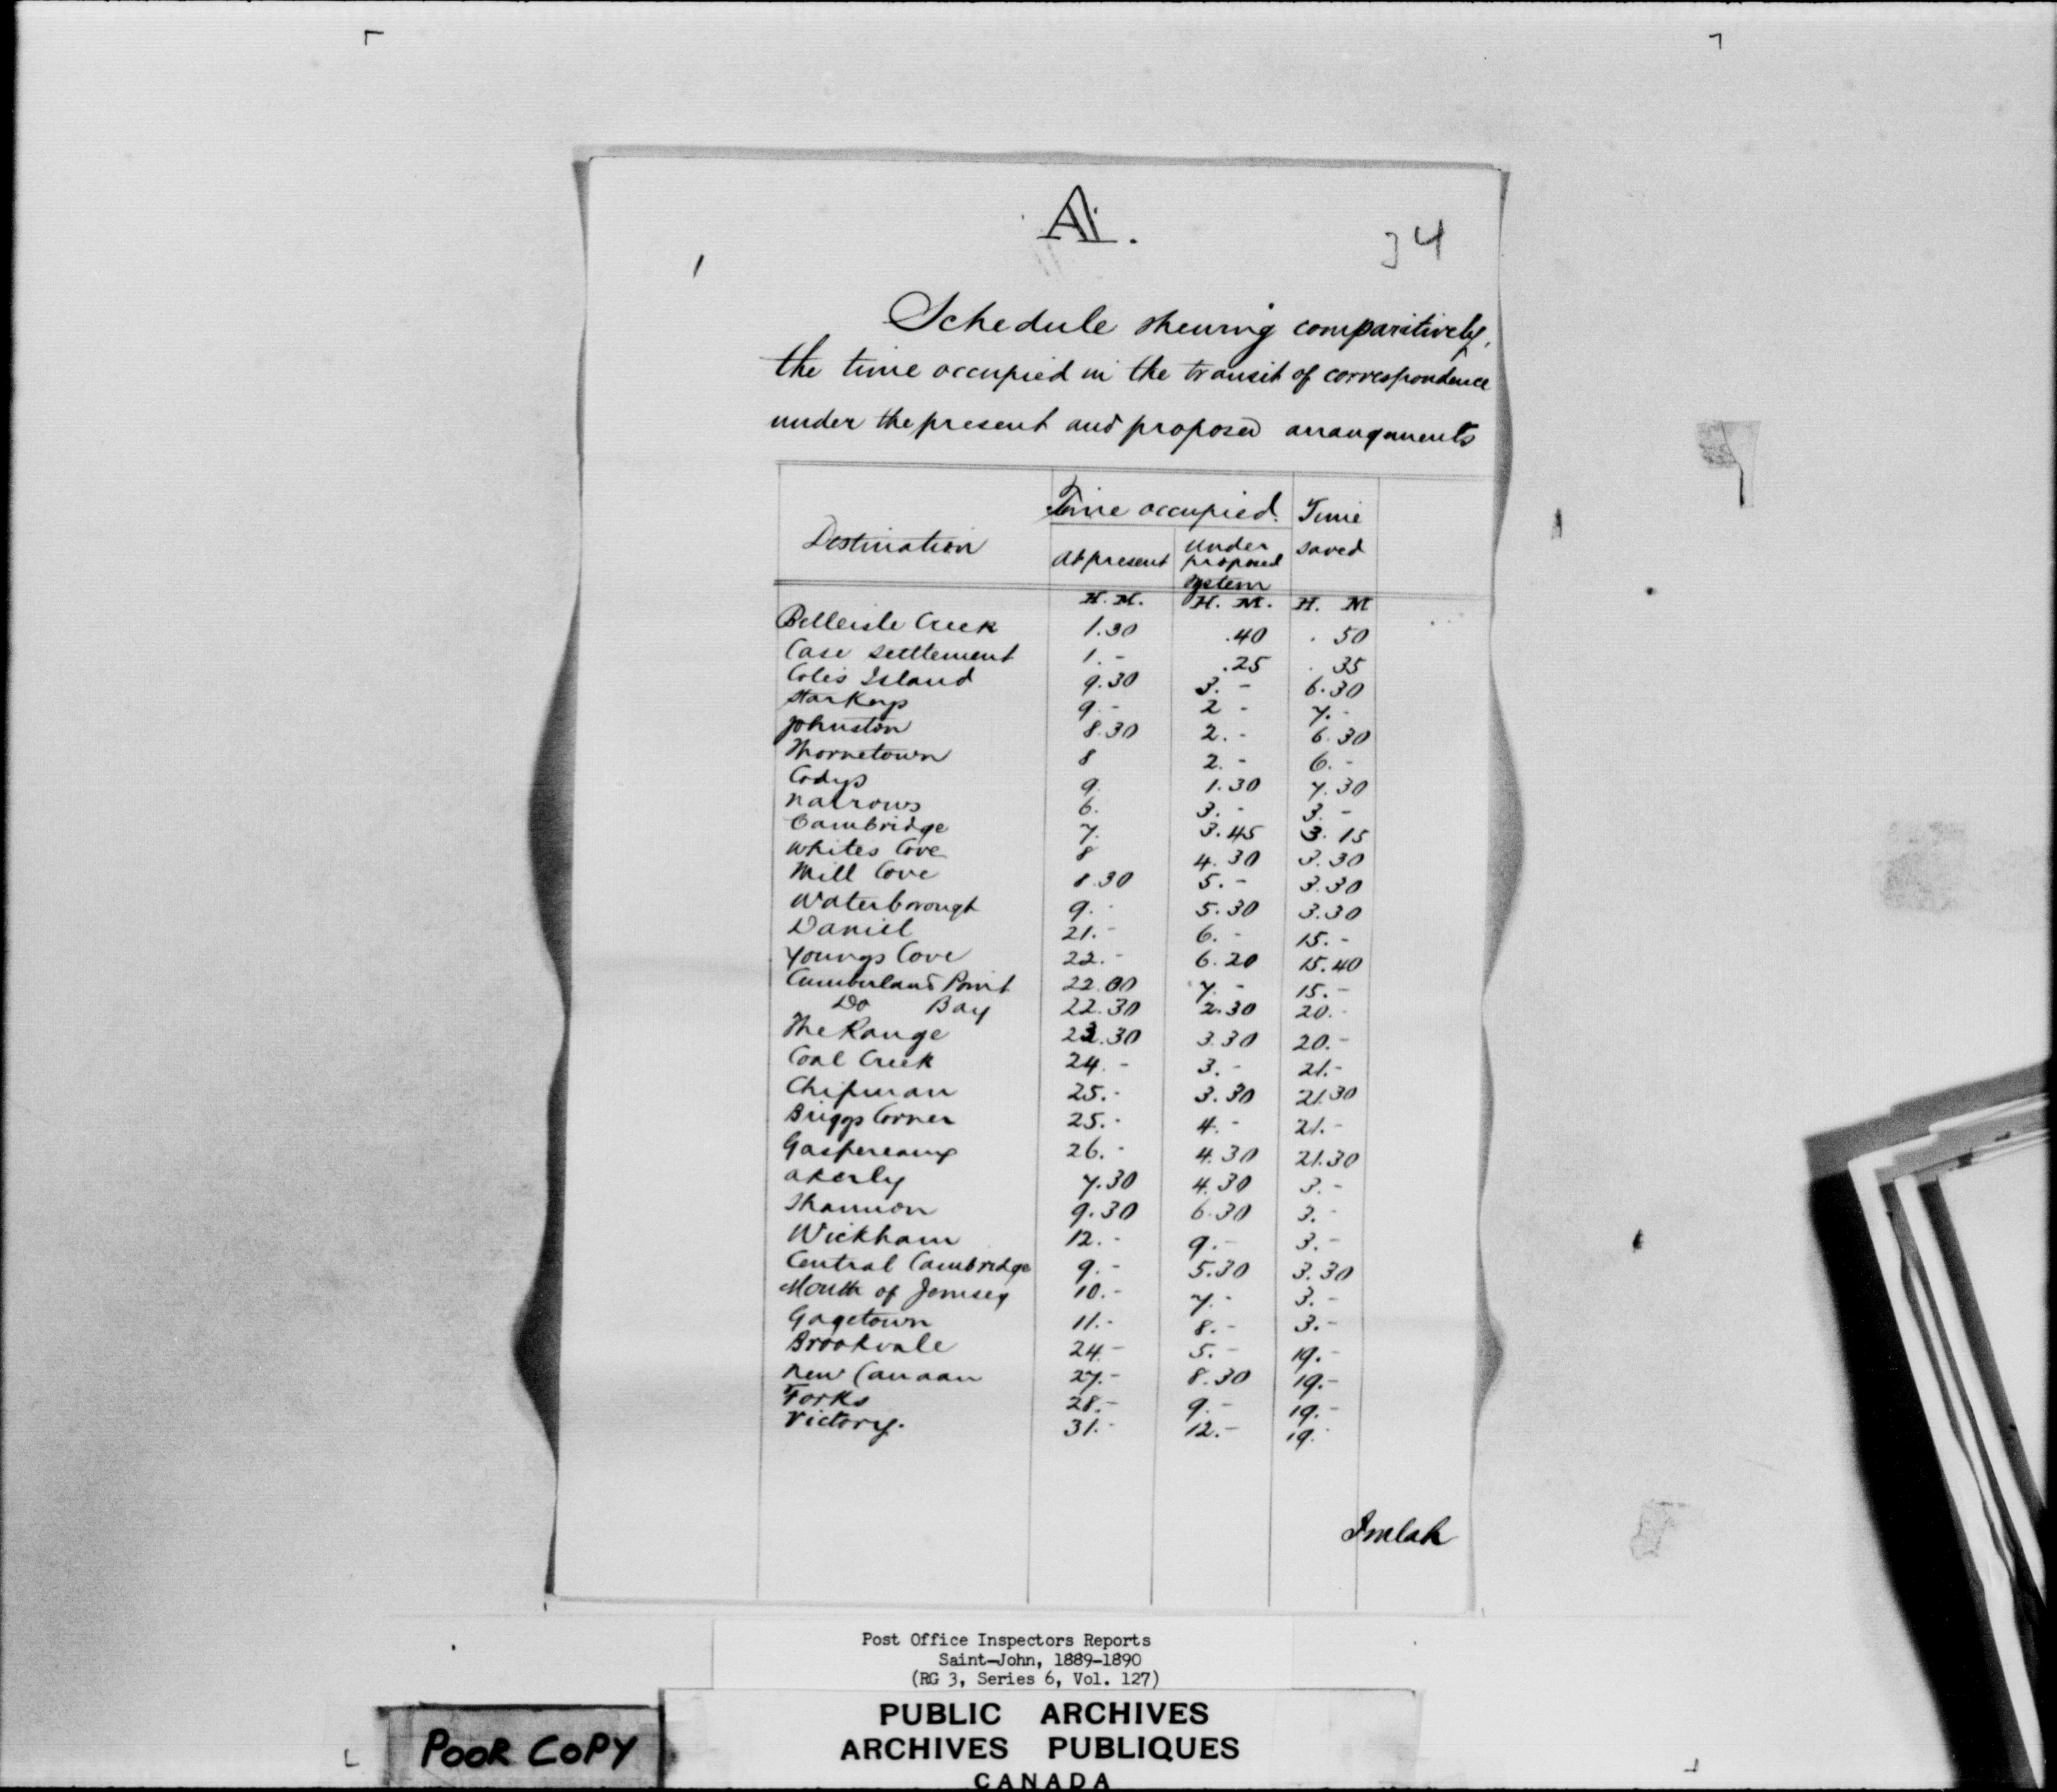 A.
34
Schedule shewing comparitively,
the time occupied in the transit of correspondence
under the present and proposed arrangements
Destination Time occupied. Time saved
At present Under proposed system
H. M. H. M. H. M
Belleisle Creek 1.30 .40 . 50
Case Settlement 1.- .25 . 35
Coles Island 9.30 3. - 6.30
Starkeys 9.- 2 - 7.-
Johnston 8.30 2. - 6.30
Thornetown 8 2. - 6. -
Codys 9. 1.30 7.30
Narrows 6. 3. - 3. -
Cambridge 7. 3.45 3. 15
Whites Cove 8 4.30 3.30
Mill Cove 8.30 5. - 3.30
Waterborough 9. - 5.30 3.30
Daniel 21. - 6. - 15. -
Youngs Cove 22. - 6.20 15.40
Cumberland Point 22.00 7. - 15. -
Do Bay 22.30 2.30 20. -
The Range 23.30 3.30 20. -
Coal Creek 24. - 3. - 21. -
Chipman 25. - 3.30 21.30
Briggs Corner 25. - 4. - 21. -
Gaspereaux 26. - 4.30 21.30
Akerly 7.30 4.30 3. -
Shannon 9.30 6.30 3. -
Wickham 12. - 9. - 3. -
Central Cambridge 9. - 5.30 3.30
Mouth of Jemseg 10. - 7. - 3. -
Gagetown 11. - 8. - 3. -
Brookvale 24 - 5. - 19. -
New Canaan 27. - 8.30 19. -
Forks 28. - 9. - 19. -
Victory. 31. - 12. - 19. -
Imlah
Post Office Inspectors Reports
Saint-John, 1889-1890
(RG 3, Series 6, Vol. 127)
PUBLIC ARCHIVES
ARCHIVES PUBLIQUES
CANADA
POOR COPY